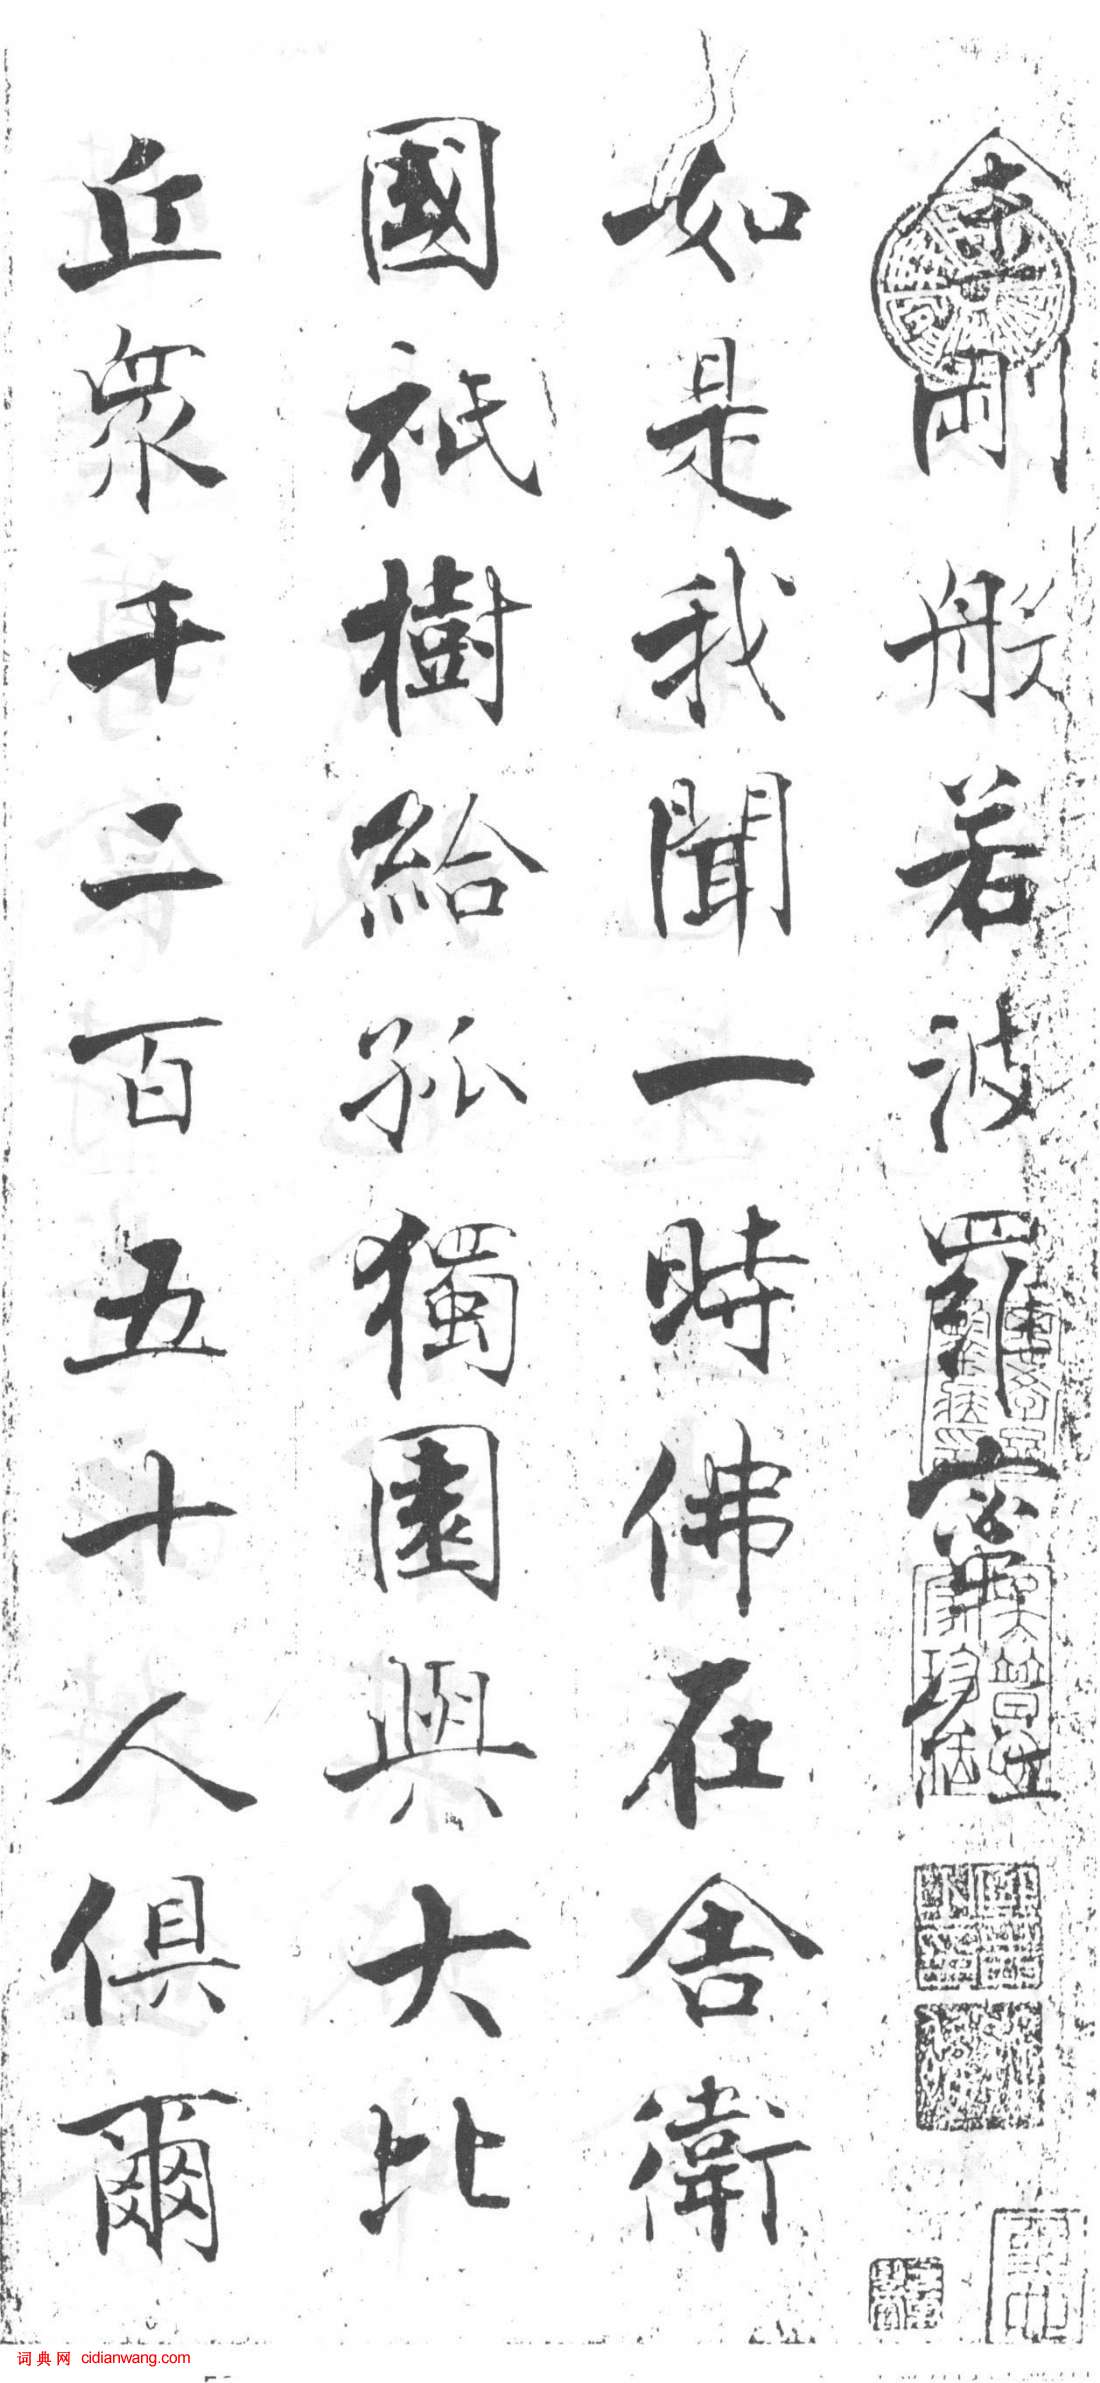 金剛般若波羅蜜經
如是我聞一時佛在舍衛
國祇樹給孤獨園與大比
丘眾千二百五十人俱爾
词典网 cidianwang.com